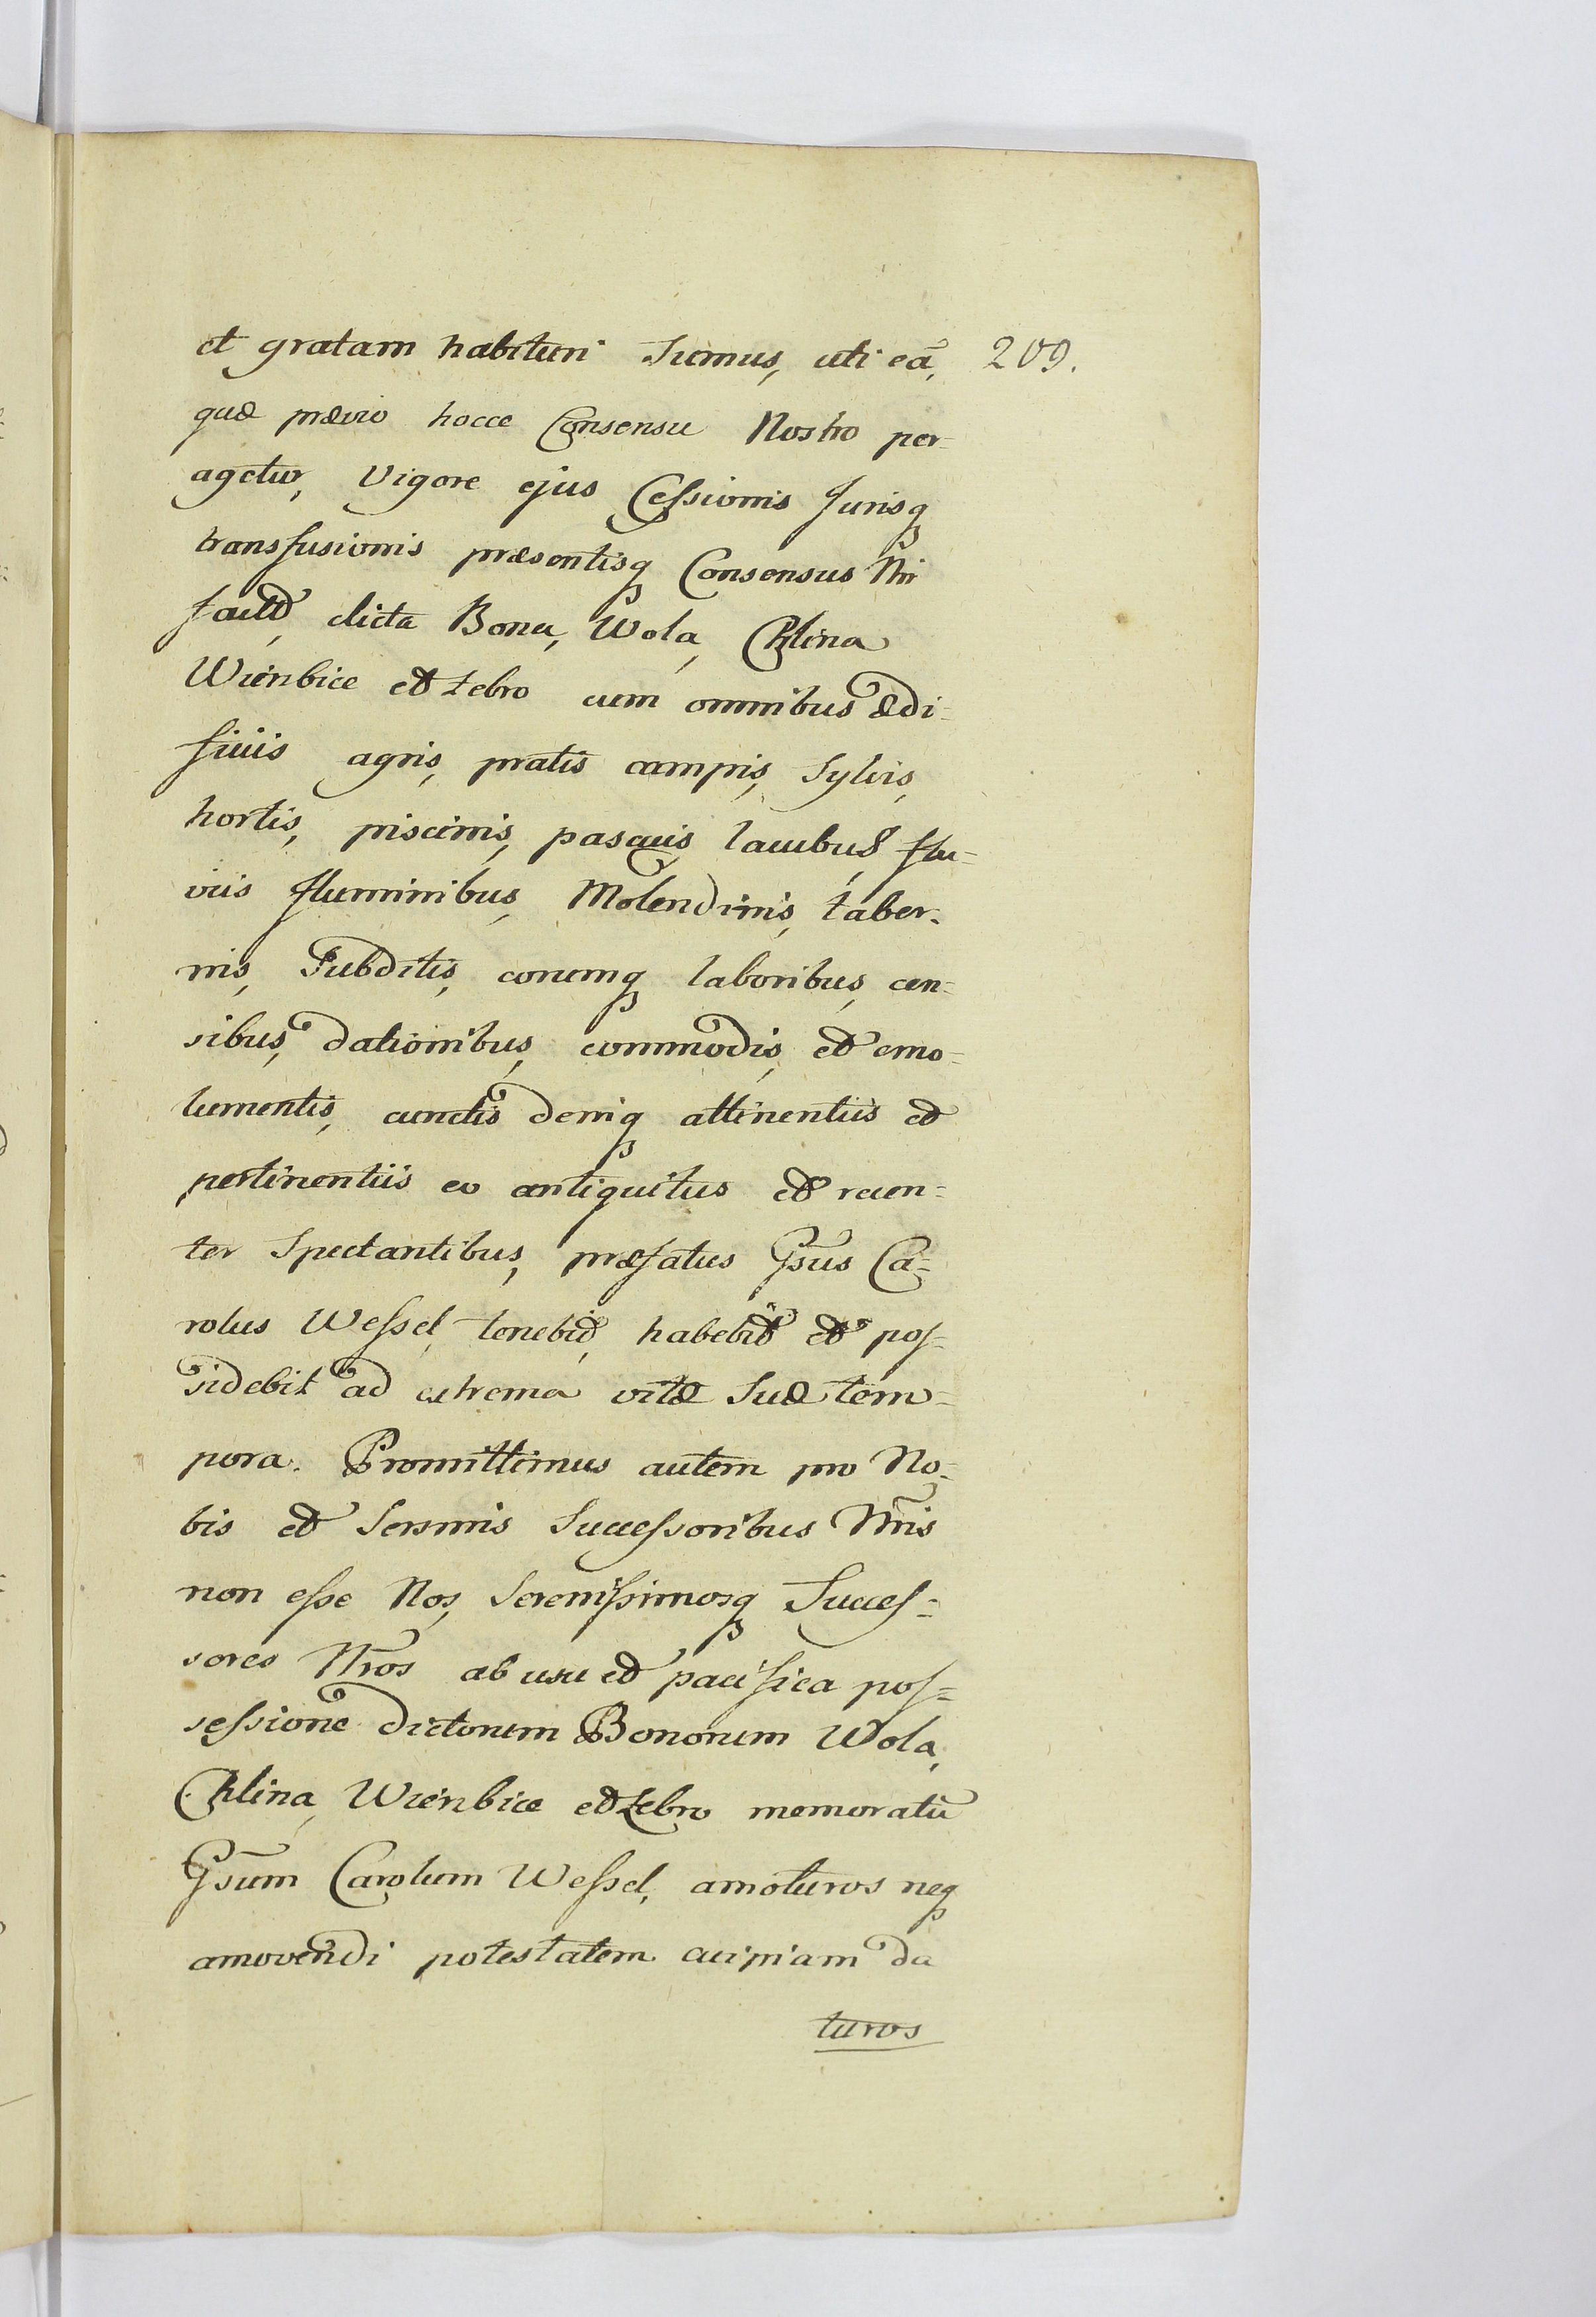 et gratam habituri Sumus, uti eā, 209.
quæ prævio hocce Consensu Nostro per=
agetur, Vigore ejus Cessionis Jurisq
transfusionis præsentisq Consensus Nri
facta, dicta Bona, Wola, Chlina
Wierzbice et Zebro cum omnibus ædi=
ficiis agris, pratis campis, Sylvis,
hortis, piscinis, pascuis lacubus, flu=
viis fluminibus, Molendinis, taber=
nis, Subditis, eorumq laboribus, cen=
sibus, dationibus, commodis, et emo=
lumentis, cunctis deniq attinentiis et
pertinentiis eo antiquitus et recen=
ter Spectantibus, præfatus Gsus Ca=
rolus Wessel, tenebit, habebit et pos=
sidebit ad extrema vitæ Suæ tem=
pora. Promittimus autem pro No=
bis et Sersmis Successoribus Nris
non esse Nos, Serenissimosq Succes=
sores Nros ab usu et pacifica pos=
sessione dictorum Bonorum Wola,
Chlina, Wierzbice et Zebro memoratū
Gsum Carolum Wessel, amoturos neq
amovendi potestatem cuipiam da
turos